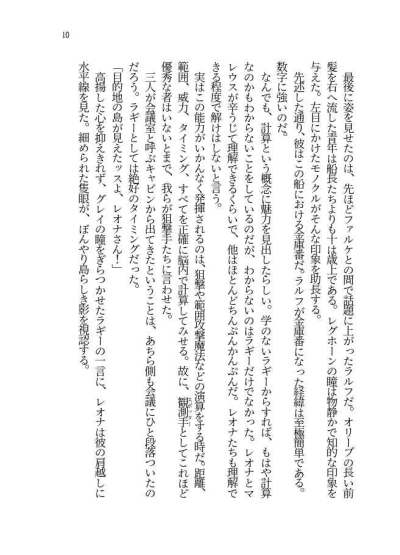 10
　最後に姿を見せたのは、先ほどファルケとの間で話題に上がったラルフだ。オリーブの長い前
髪を右へ流した青年は船長たちよりも十は歳上である。レグホーンの瞳は物静かで知的な印象を
与えた。左目にかけたモノクルがそんな印象を助長する。
　先述した通り、彼はこの船における金庫番だ。ラルフが金庫番になった経緯は至極簡単である。
数字に強いのだ。
　なんでも、計算という概念に魅力を見出したらしい。学のないラギーからすれば、もはや計算
なのかもわからないことをしているのだが、わからないのはラギーだけでなかった。レオナとマ
レウスが辛うじて理解できるくらいで、他はほとんどちんぷんかんぷんだ。レオナたちも理解で
きる程度で解けはしないと言う。
　実はこの能力がいかんなく発揮されるのは、狙撃や範囲攻撃魔法などの演算をする時だ。距離、
範囲、威力、タイミング、すべてを正確に脳内で計算してみせる。故に、観測手としてこれほど
優秀な者はいないとまで、我らが狙撃手たちに言わせた。
　三人が会議室と呼ぶキャビンから出てきたということは、あちら側も会議にひと段落ついたの
だろう。ラギーとしては絶好のタイミングだった。
「目的地の島が見えたッスよ、レオナさん！」
　高揚した心を抑えきれず、グレイの瞳をぎらつかせたラギーの一言に、レオナは彼の肩越しに
水平線を見た。細められた隻眼が、ぼんやり島らしき影を視認する。